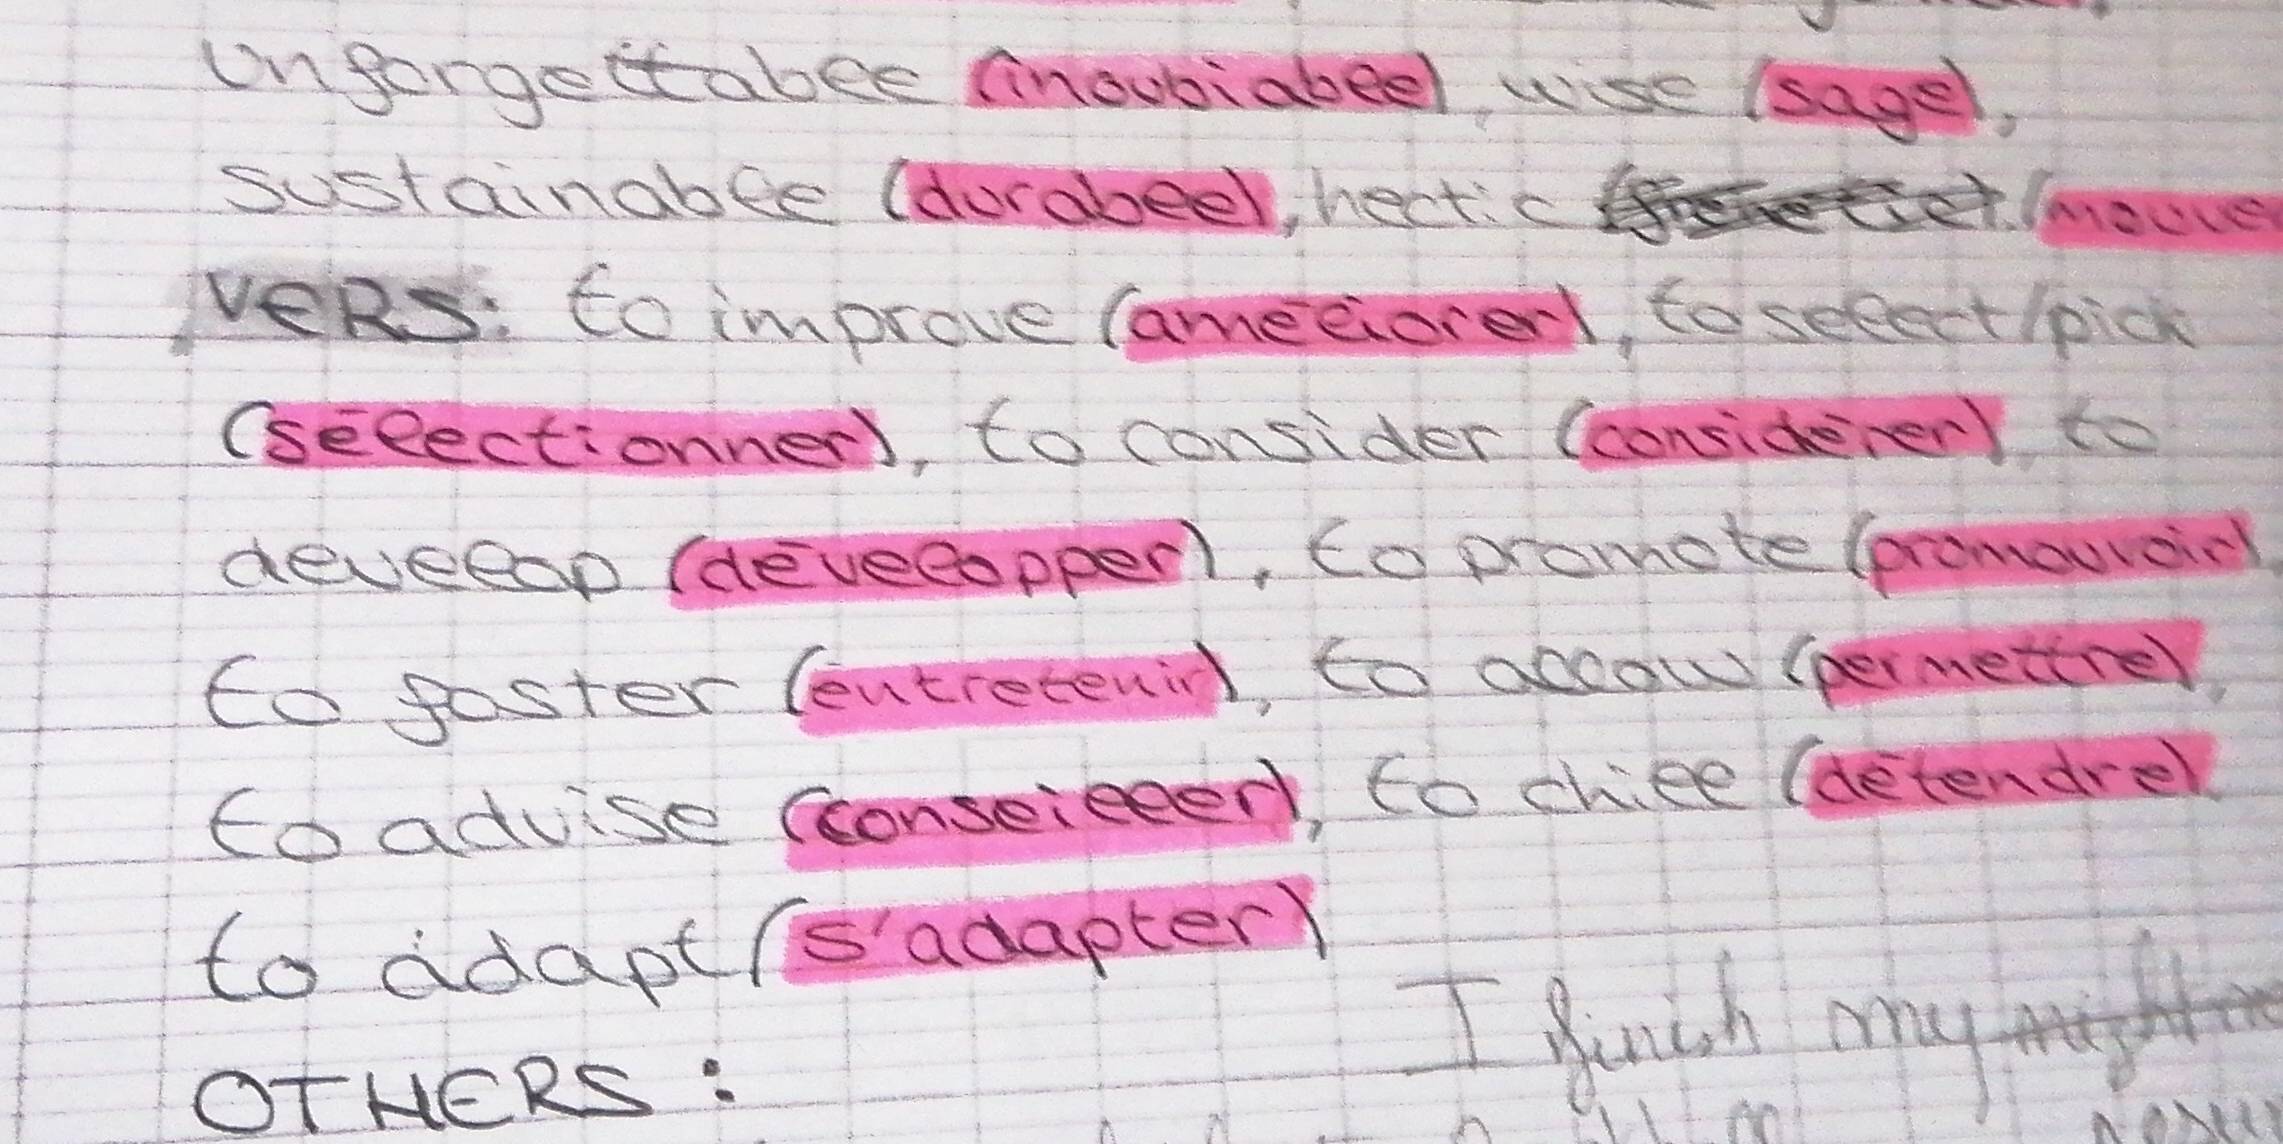 Unforgettable (inoubiable), wise (sage),
sustainable (durable), hectic (mouve
VERS: to improve (améliorer), to select/pick
(sélectionner), to consider (considérer), to
develop (développer), to promote (promouvoir)
to foster (entretenir), to allow (permettre),
to advise (conseiller), to chill (détendre)
to adapt (s'adapter)
I finish my
OTHERS :